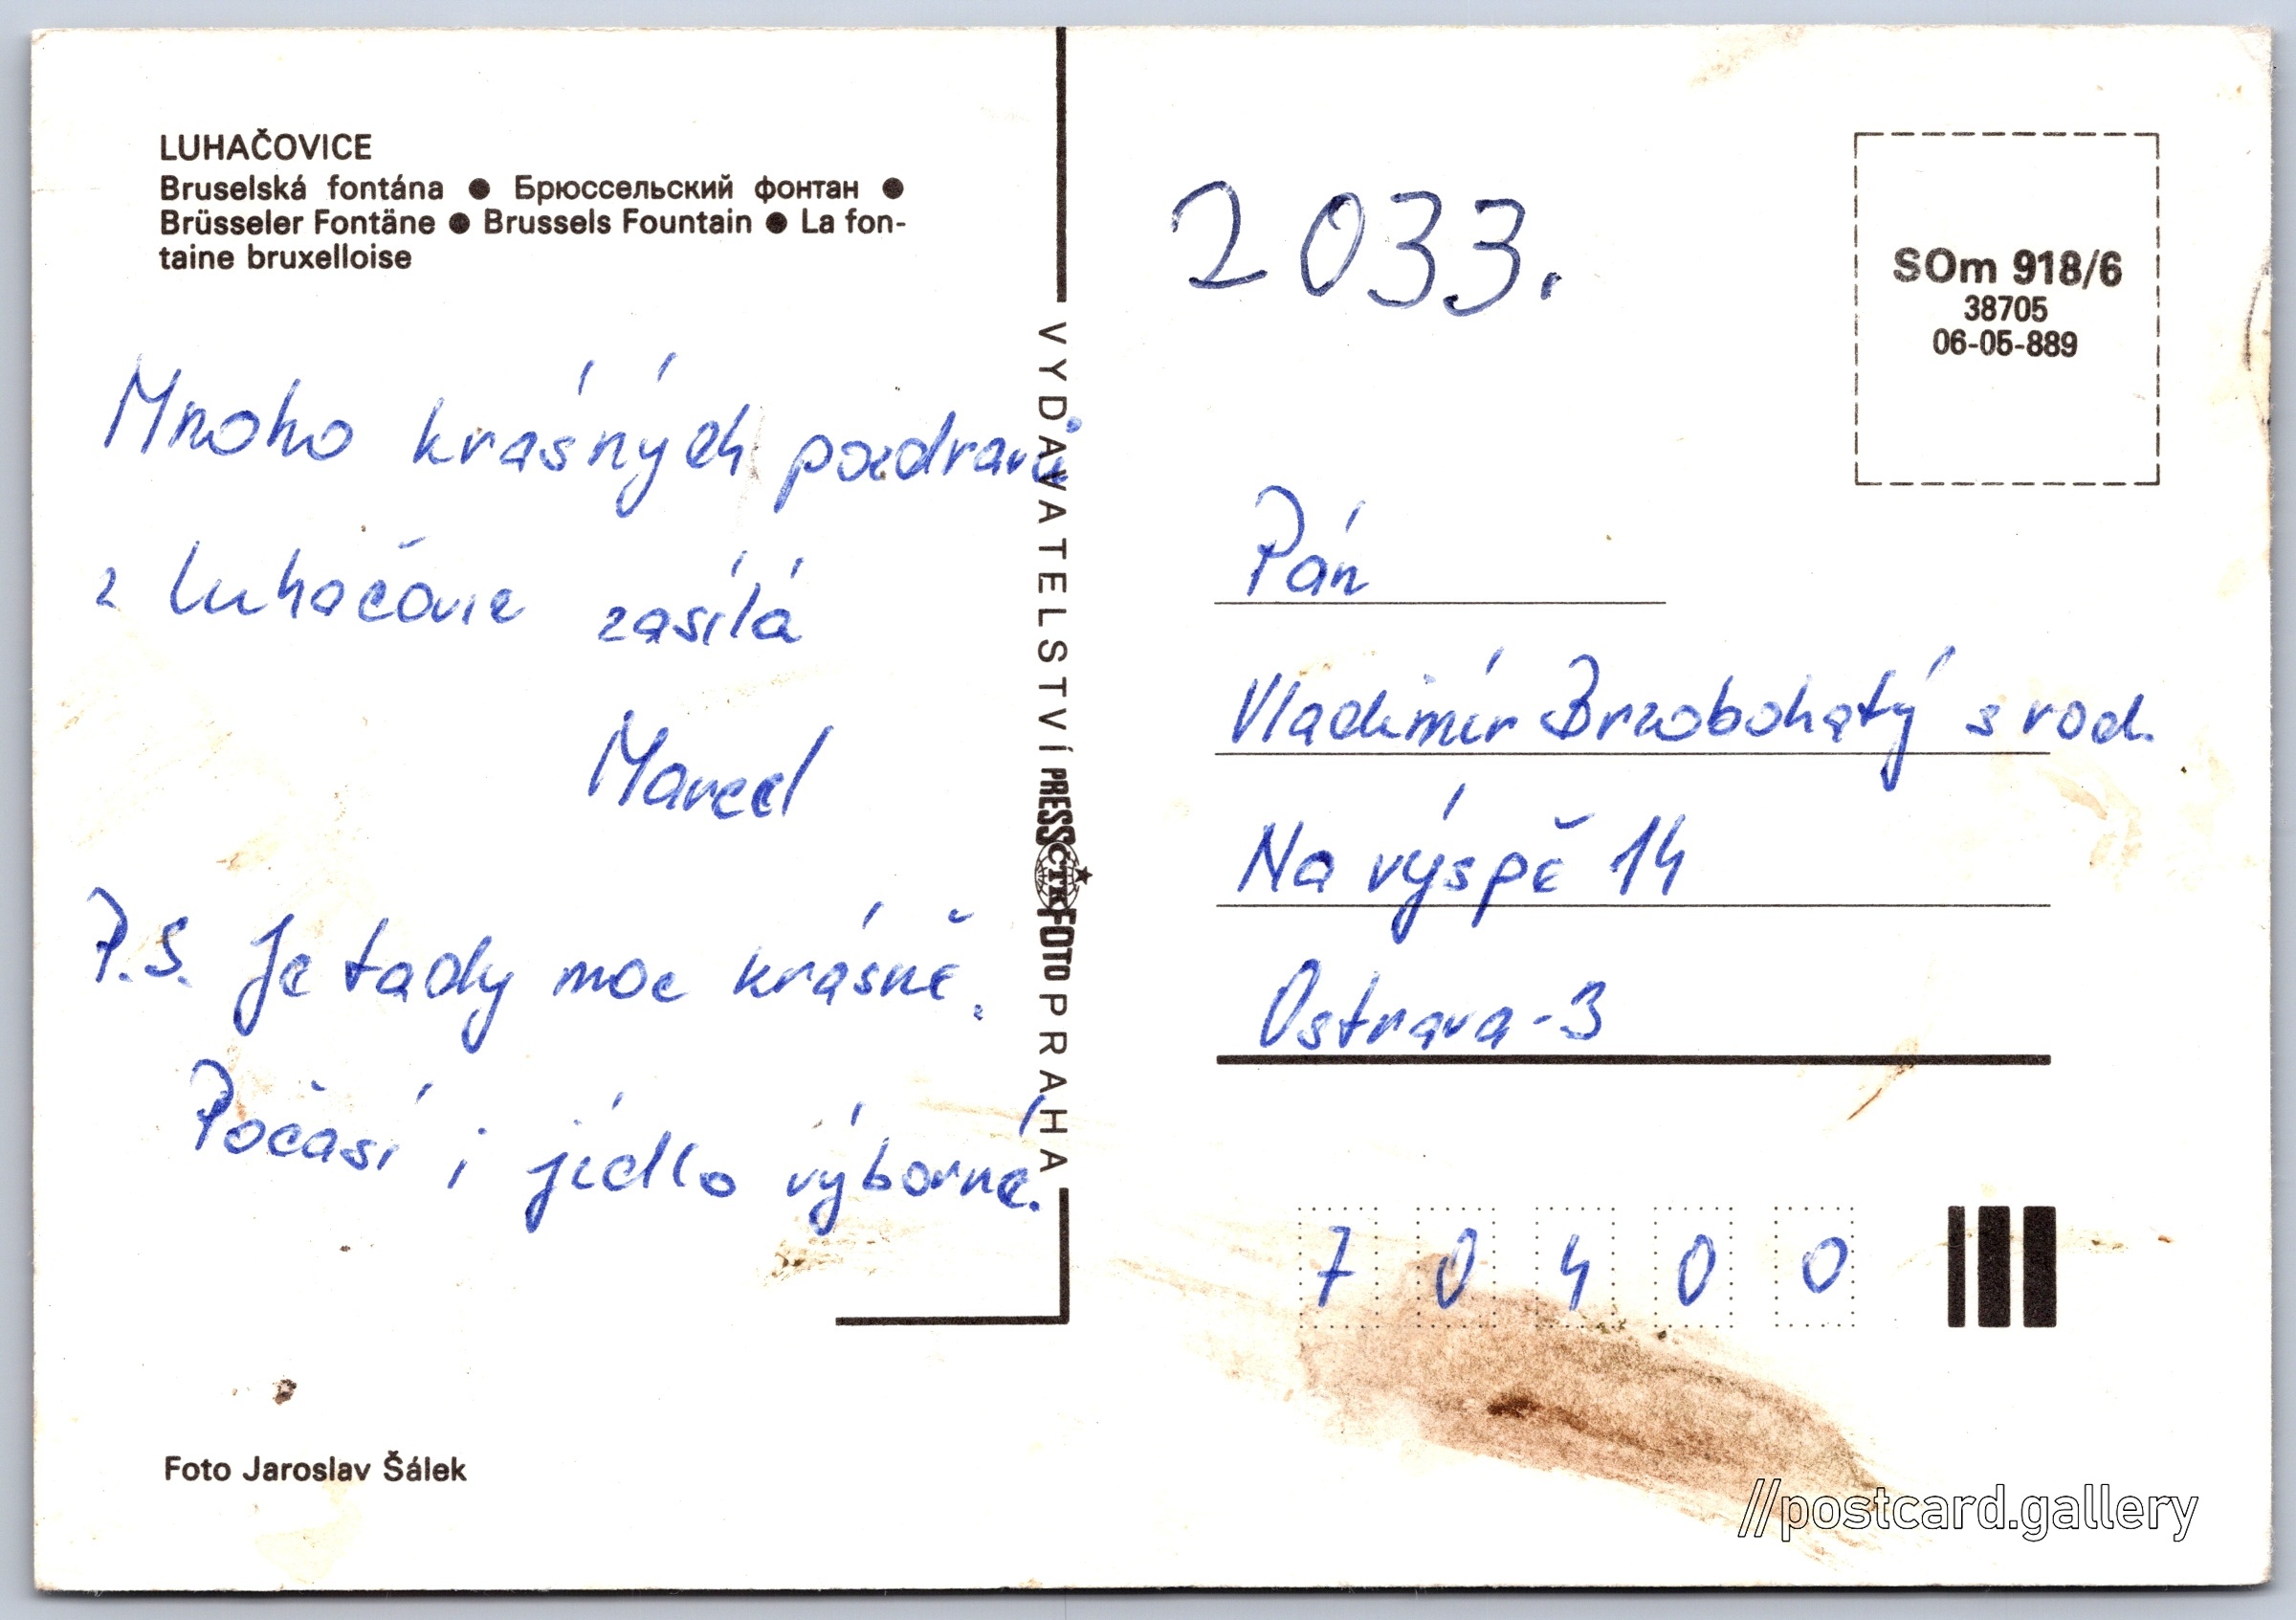 LUHAČOVICE
Bruselská fontána ● Брюссельский фонтан ●
Brüsseler Fontäne ● Brussels Fountain ● La fon-
taine bruxelloise
Mnoho krásných pozdravů
z Luhačovic zasílá
Marcel
P.S. Je tady moc krásně.
Počasí i jídlo výborné.
Foto Jaroslav Šálek
VYDAVATELSTVÍ PRESSFOTO PRAHA
ČTK
2033.
SOm 918/6
38705
06-05-889
Pán
Vladimír Brzobohatý s rod.
Na výspě 14
Ostrava-3
70400
//postcard.gallery